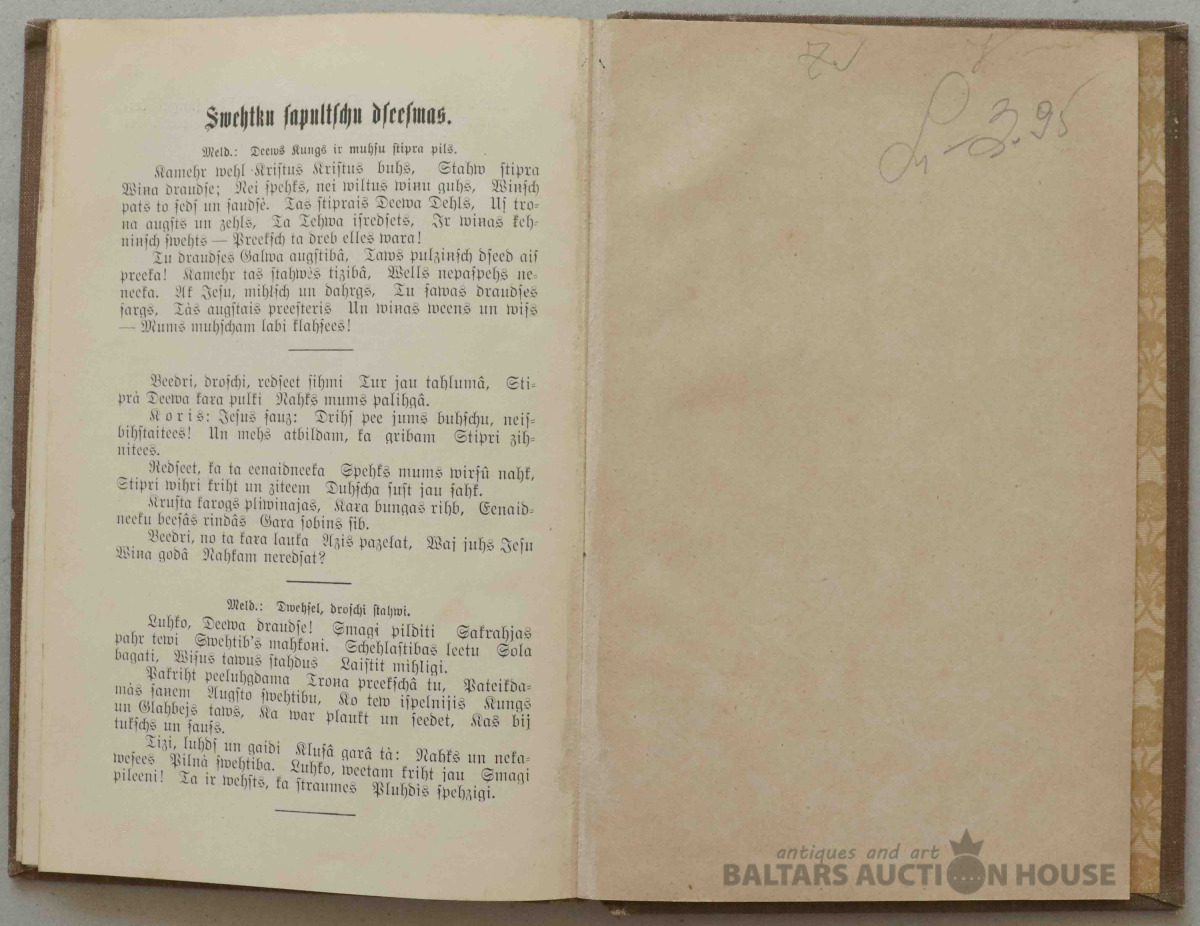 Swehtku sapultschu dseesmas.
Meld.: Deews Kungs ir muhsu stipra pils.
Kamehr wehl Kristus Kristus buhs, Stahw stipra
Wina draudse; Nei spehks, nei wiltus winu guhs, Winsch
pats to seds un saudsè. Tas stiprais Deewa Dehls, Us tro=
na augsts un zehls, Ta Tehwa isredsets, Ir winas keh=
ninsch swehts — Preeksch ta dreb elles wara!
Tu draudses Galwa augstibâ, Taws pulzinsch dseed ais
preeka! Kamehr tas stahwès tizibâ, Wells nepaspehs ne=
neeka. Ak Jesu, mihlsch un dahrgs, Tu sawas draudses
sargs, Tàs augstais preesteris Un winas weens un wiss
— Mums muhscham labi klahsees!
Beedri, droschi, redseet sihmi Tur jau tahlumâ, Sti=
prà Deewa kara pulki Nahks mums palihgâ.
Koris: Jesus sauz: Drihs pee jums buhschu, neis=
bihstaitees! Un mehs atbildam, ka gribam Stipri zih=
nitees.
Redseet, ka ta eenaidneeka Spehks mums wirsû nahk,
Stipri wihri kriht un ziteem Duhscha sust jau sahk.
Krusta karogs pliwinajas, Kara bungas rihb, Eenaid=
neeku beesâs rindâs Gara sobins sib.
Beedri, no ta kara lauka Azis pazelat, Waj juhs Jesu
Wina godâ Nahkam neredsat?
Meld.: Dwehsel, droschi stahwi.
Luhko, Deewa draudse! Smagi pilditi Sakrahjas
pahr tewi Swehtib's mahkoni. Schehlastibas leetu Sola
bagati, Wisus tawus stahdus Laistit mihligi.
Pakriht peeluhgdama Trona preekschâ tu, Pateikda=
màs sanem Augsto swehtibu, Ko tew ispelnijis Kungs
un Glahbejs taws, Ka war plaukt un seedet, Kas bij
tukschs un sauss.
Tizi, luhds un gaidi Klusâ garâ tà: Nahks un neka=
wesees Pilnà swehtiba. Luhko, weetam kriht jau Smagi
pileeni! Ta ir wehsts, ka straumes Pluhdis spehzigi.
3.95
antiques and art
BALTARS AUCTION HOUSE